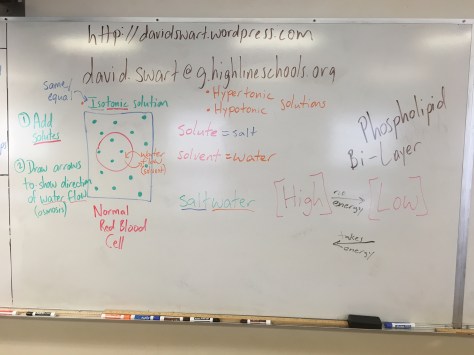 http://davidswart.wordpress.com
david.swart@g.highlineschools.org
same/
equal
Isotonic solution
• Hypertonic
• Hypotonic
solutions
① Add
solutes
② Draw arrows
to show direction
of water flow
water
Normal
Red Blood
Cell
solute = salt
solvent = water
saltwater
[High]
no
energy
[Low]
takes
energy
Phospholipid
Bi-Layer